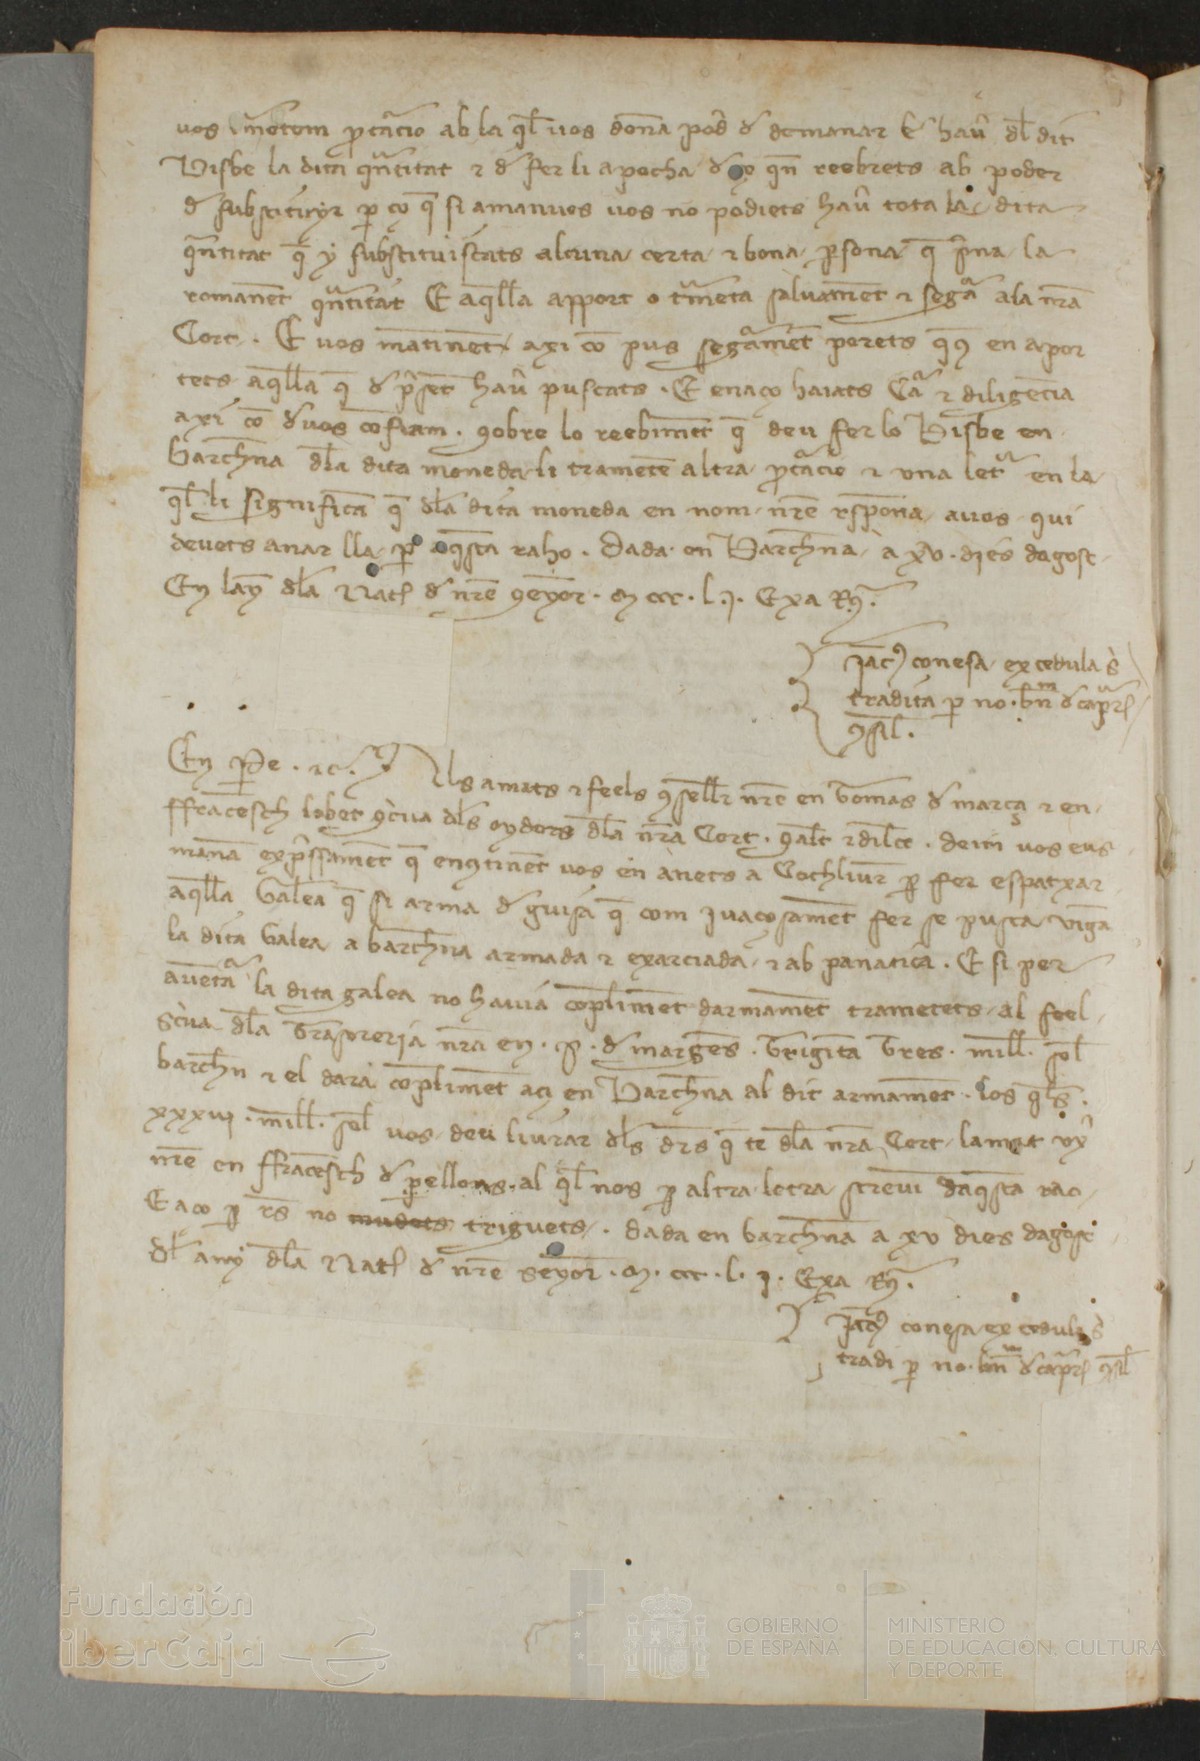 vos trametem pcuracio ab la ql vos donam poder d demanar e haver dl dit
Bisbe la dita quantitat e d fer li apocha d ço qn reebrets ab poder
d substituyr p ço q si amanvos vos no podiets haver tota la dita
quantitat q y substituiscats alcuna certa e bona psona q prena la
romanent quantitat E aqlla apport o trameta salvament e segura ala nra
Cort . E vos mantinent axi com pus segurament porets qus en apor
tets aqlla q d present haver puscats . E enaço haiats Cura e diligencia
axi com d vos confiam . sobre lo reebiment q deu fer lo Bisbe en
barchna dla dita moneda li trametem altra pcuracio e una letra en la
ql li significam q dla dita moneda en nom nre respona a vos qui
devets anar lla p aqsta raho . Dada en Barchna a xv . dies dagost
En lany dla Nat d nre senyor . m ccc . l . j . Exa R.
Jacs conesa ex cedula s
tradita p no . bn d capr
9sil .
En Pe . etc . Als amats e feels 9sellrs nres en Thomas d marça e en
ffrancesch lobet scriva dls oydors dla nra Cort . salut e dilcc . deim vos eus
manam expressament q en9tinent vos en anets a Cochliure p fer espatxar
aqlla Galea q si arma d guisa q com ivaçosament fer se pusca vinga
la dita Galea a barchna armada e exarciada e ab panatica . E si per
aventura la dita galea no havia compliment darmament trametets al feel
scriva dla Thesoreria nra en . P . d margens . Triginta Tres . mill . sol
barchn e el dara compliment aci en Barchna al dit armament . los qls
xxxiij . mill . sol vos deu liurar dls drs q te dla nra Cort lamat
nre en ffrancesch d pellons al ql nos p altra letra screvim daqsta rao
E aço p res no mudets triguets . dada en barchna a xv dies dagost
dl any dla Nat d nre senyor . m . ccc . l . j . Exa R.
Jacs conesa ex cedula s
tradi p no . bn d capr 9sil
Fundación
iberCaja
GOBIERNO
DE ESPAÑA
MINISTERIO
DE EDUCACIÓN, CULTURA
Y DEPORTE